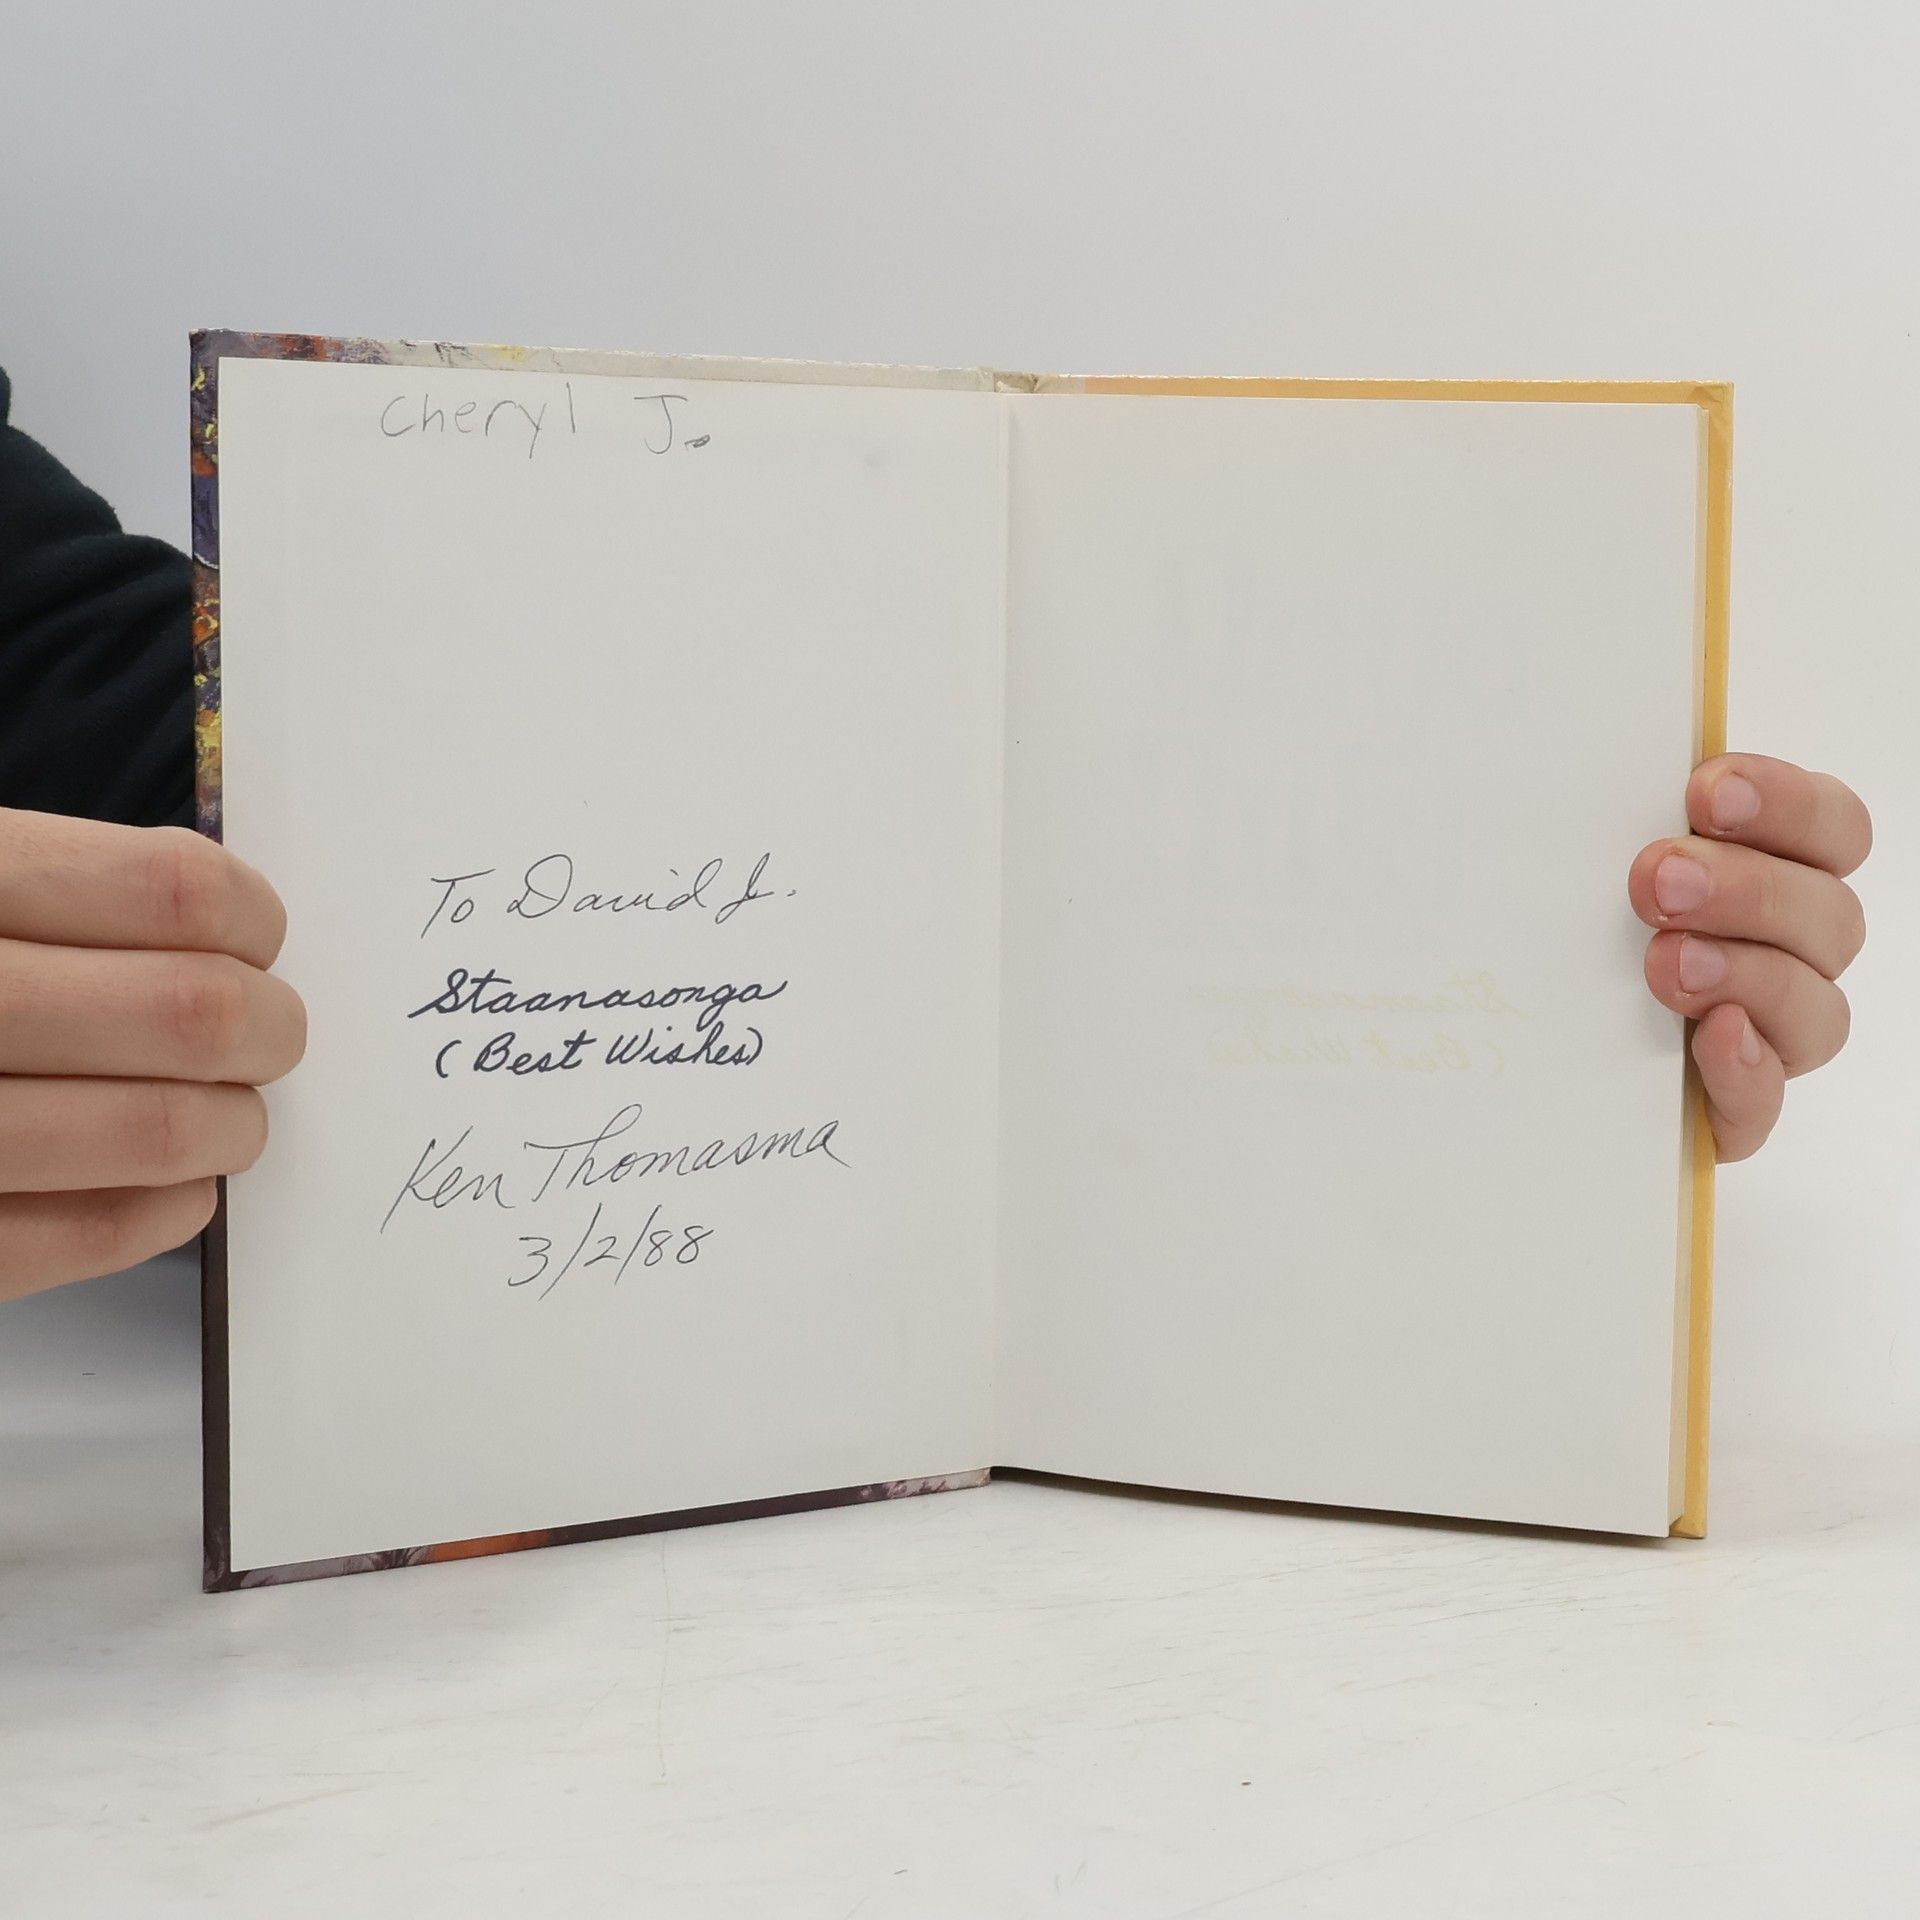 Cheryl J.
To David J.
Staanasonga
(Best Wishes)
Ken Thomasma
3/2/88